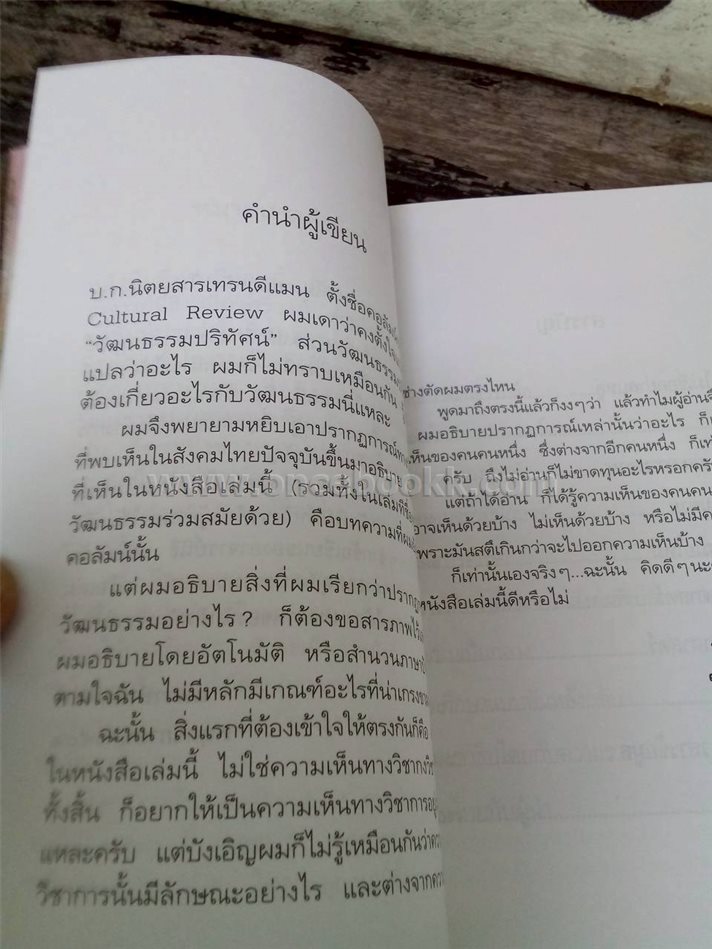 คำนำผู้เขียน
บ.ก.นิตยสารเทรนดีแมน ตั้งชื่อคอลัมน์
Cultural Review ผมเดาว่าคงตั้งใจ
“วัฒนธรรมปริทัศน์” ส่วนวัฒนธรรม
แปลว่าอะไร ผมก็ไม่ทราบเหมือนกัน
ต้องเกี่ยวอะไรกับวัฒนธรรมนี่แหละ
ผมจึงพยายามหยิบเอาปรากฏการณ์
ที่พบเห็นในสังคมไทยปัจจุบันขึ้นมาอธิบาย
ที่เห็นในหนังสือเล่มนี้ (รวมทั้งในเล่มที่ชื่อ
วัฒนธรรมร่วมสมัยด้วย) คือบทความที่
คอลัมน์นั้น
แต่ผมอธิบายสิ่งที่ผมเรียกว่าปรากฏ
วัฒนธรรมอย่างไร? ก็ต้องขอสารภาพไว้
ผมอธิบายโดยอัตโนมัติ หรือสำนวนภาษา
ตามใจฉัน ไม่มีหลักมีเกณฑ์อะไรที่น่าเกรงขาม
ฉะนั้น สิ่งแรกที่ต้องเข้าใจให้ตรงกันก็คือ
ในหนังสือเล่มนี้ ไม่ใช่ความเห็นทางวิชากงวิ
ทั้งสิ้น ก็อยากให้เป็นความเห็นทางวิชาการอยู่
แหละครับ แต่บังเอิญผมก็ไม่รู้เหมือนกันว่าควา
วิชาการนั้นมีลักษณะอย่างไร และต่างจากควา
ช่างตัดผมตรงไหน
พูดมาถึงตรงนี้แล้วก็งงๆว่า แล้วทำไมผู้อ่าน
ผมอธิบายปรากฏการณ์เหล่านั้นว่าอะไร ก็
เห็นของคนคนหนึ่ง ซึ่งต่างจากอีกคนหนึ่ง ก็เท่า
ครับ ถึงไม่อ่านก็ไม่ขาดทุนอะไรหรอกครั
แต่ถ้าได้อ่าน ก็ได้รู้ความเห็นของคนคน
อาจเห็นด้วยบ้าง ไม่เห็นด้วยบ้าง หรือไม่มีค
เพราะมันสตึเกินกว่าจะไปออกความเห็นบ้าง
ก็เท่านั้นเองจริงๆ...ฉะนั้น คิดดีๆนะค
หนังสือเล่มนี้ดีหรือไม่